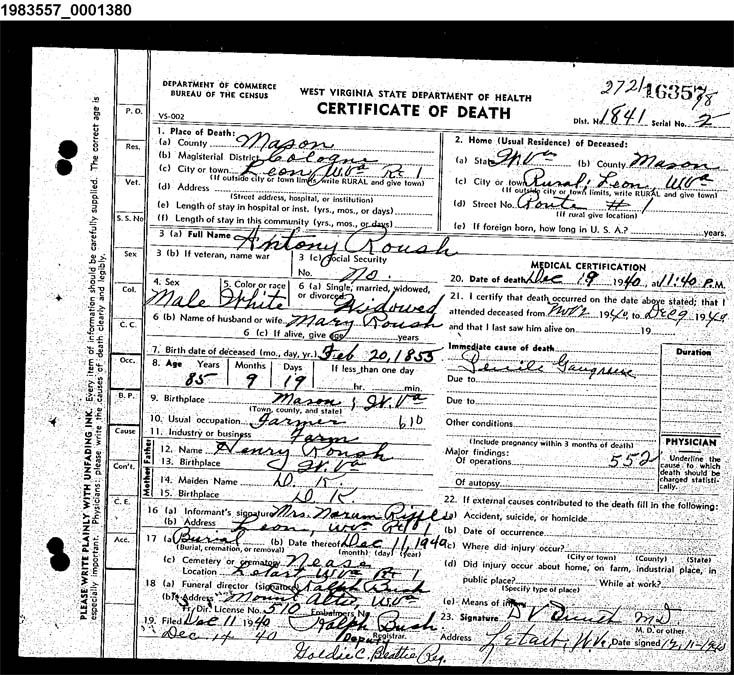 1983557_0001380
DEPARTMENT OF COMMERCE
BUREAU OF THE CENSUS
WEST VIRGINIA STATE DEPARTMENT OF HEALTH
CERTIFICATE OF DEATH
272/98
16357
VS-002
Dist. No. 1841 Serial No. 2
P. D.
Res.
Vet.
S. S. No
Sex
Col.
C. C.
Occ.
B. P.
Cause
Con't.
C. E.
Acc.
PLEASE WRITE PLAINLY WITH UNFADING INK. Every item of information should be carefully supplied. The correct age is
especially important. Physicians: please write the causes of death clearly and legibly.
1. Place of Death:
(a) County Mason
(b) Magisterial District Cologne
(c) City or town Leon, W.Va Rt 1
(If outside city or town limits, write RURAL and give town)
(d) Address
(Street address, hospital, or institution)
(e) Length of stay in hospital or inst. (yrs., mos., or days)
(f) Length of stay in this community (yrs., mos., or days)
2. Home (Usual Residence) of Deceased:
(a) State W.Va (b) County Mason
(c) City or town Rural; Leon, W.Va
(If outside city or town limits, write RURAL and give town)
(d) Street No. Route # 1
(If rural give location)
(e) If foreign born, how long in U. S. A.? years.
3 (a) Full Name Antony Roush
3 (b) If veteran, name war
3 (c) Social Security
No. No.
4. Sex Male
5. Color or race White
6 (a) Single, married, widowed,
or divorced Widowed
6 (b) Name of husband or wife Mary Roush
6 (c) If alive, give age years
7. Birth date of deceased (mo., day, yr.) Feb 20, 1855
8. Age Years Months Days If less than one day
85 9 19 hr. min.
9. Birthplace Mason, W.Va
(Town, county, and state)
10. Usual occupation Farmer 610
11. Industry or business Farm
Father
12. Name Henry Roush
13. Birthplace W.Va
Mother
14. Maiden Name D. K.
15. Birthplace D. K.
16 (a) Informant's signature Mrs.
(b) Address Leon, W.Va Rt 1
17 (a) Burial (b) Date thereof Dec 11, 1940
(Burial, cremation, or removal) (month) (day) (year)
(c) Cemetery or crematory Nease
Location Letart W.Va Rt 1
18 (a) Funeral director (signature) Ralph Bush
(b) Address Mount W.Va
Fr. Dir. License No. 510 Embalmers No.
19. Filed Dec 11 1940 Ralph Bush
Deputy Registrar.
Dec 14 40
Goldie C. Beattie Reg.
MEDICAL CERTIFICATION
20. Date of death Dec 9 1940, at 11:40 P.M.
21. I certify that death occurred on the date above stated; that I
attended deceased from 1940, to Dec 9 1940
and that I last saw him alive on 19
Immediate cause of death Duration
Penile Gangrene
Due to
Due to
Other conditions
(Include pregnancy within 3 months of death)
Major findings:
Of operations 552
Of autopsy
PHYSICIAN
Underline the
cause to which
death should be
charged statisti-
cally.
22. If external causes contributed to the death fill in the following:
(a) Accident, suicide, or homicide
(b) Date of occurrence
(c) Where did injury occur?
(City or town) (County) (State)
(d) Did injury occur about home, on farm, industrial place, in
public place? While at work?
(Specify type of place)
(e) Means of injury
23. Signature MD
M. D. or other
Address Letart, W.Va. Date signed 12-11-1940